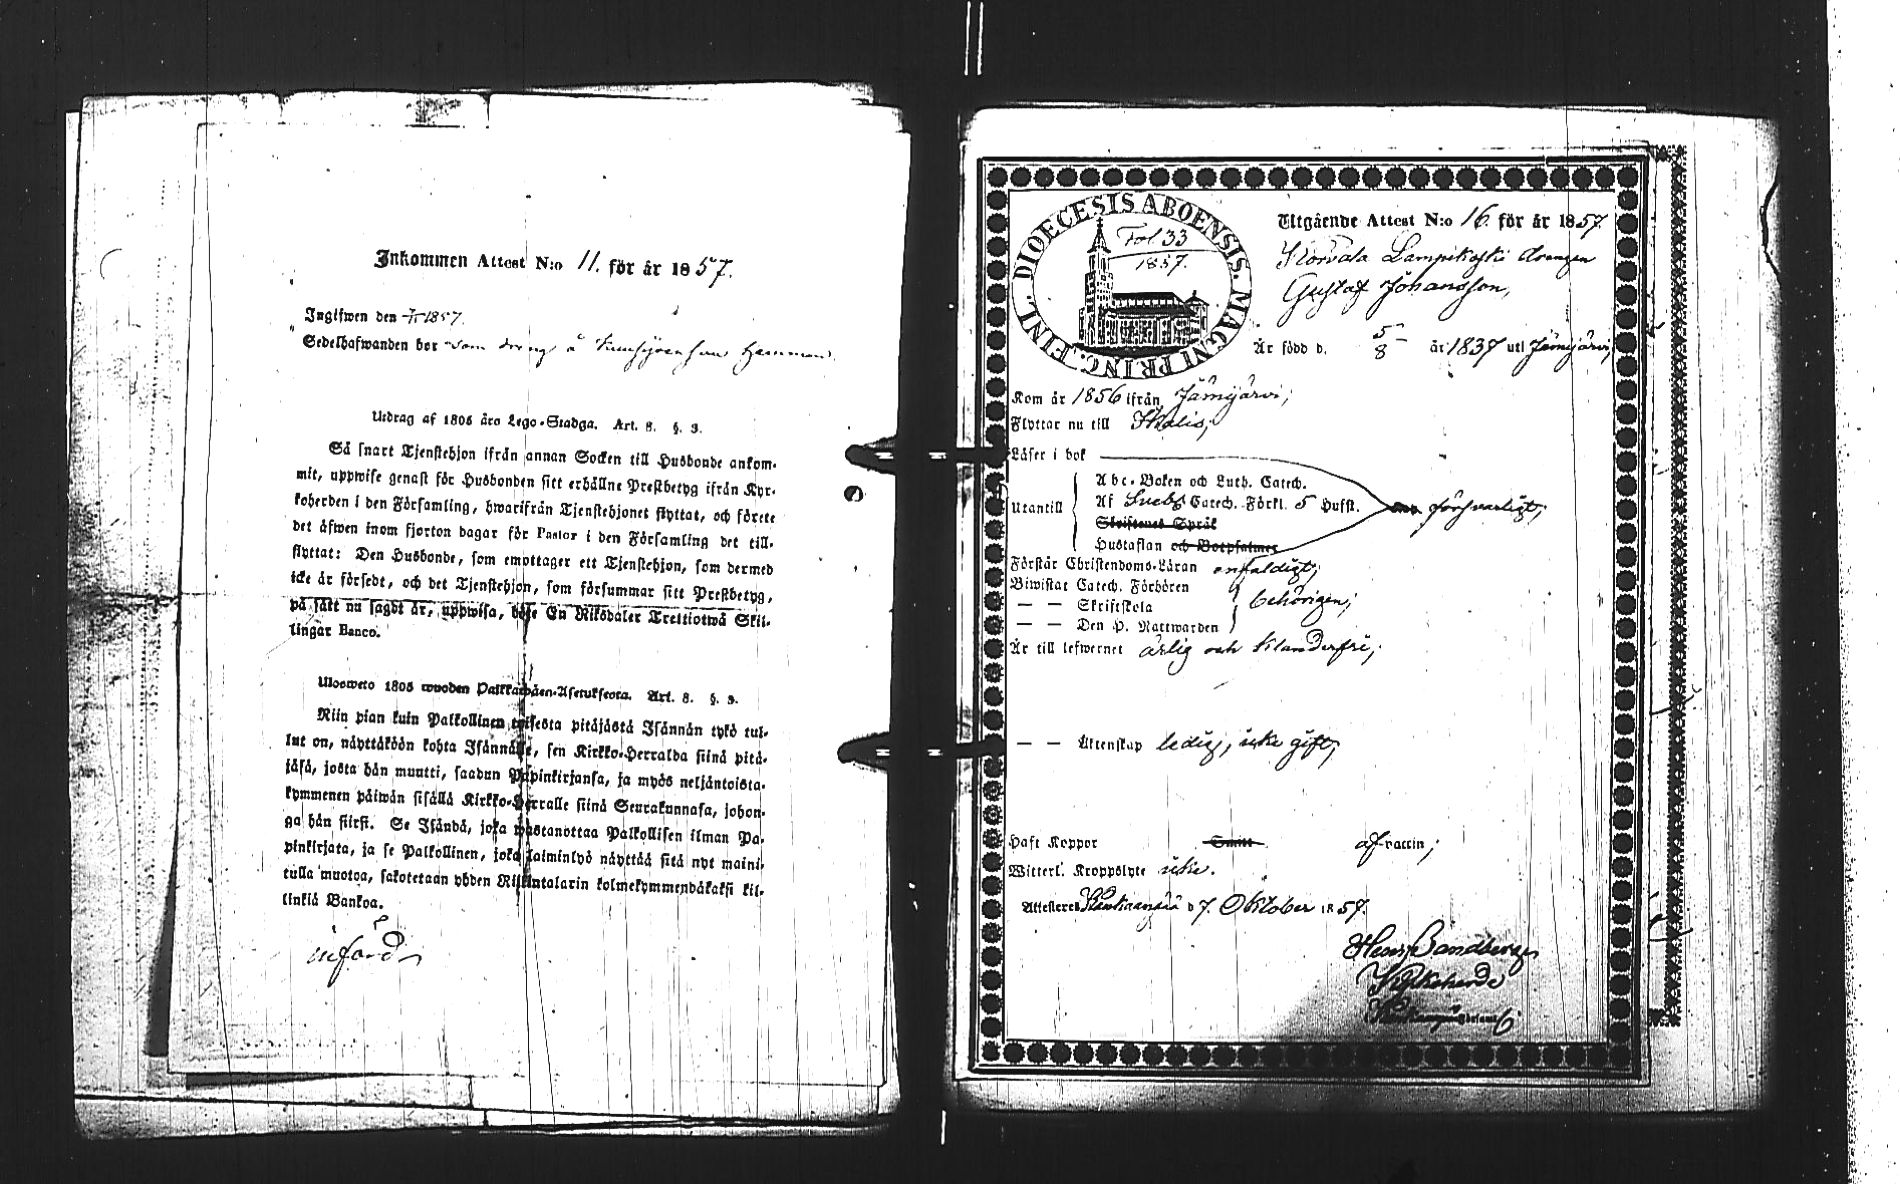 Inkommen Attest N:o 11. för år 1857.
Ingifwen den 1857.
Sedelhafwanden bor som dreng å hemman.
Utdrag af 1805 års Lego-Stadga. Art. 8. §. 3.
Så snart Tjenstehjon ifrån annan Socken till Husbonde ankom-
mit, uppwise genast för Husbonden sitt erhållne Prestbetyg ifrån Kyr-
koherden i den Församling, hwarifrån Tjenstehjonet flyttat, och förete
det äfwen inom fjorton dagar för Pastor i den Församling det till-
flyttat: Den Husbonde, som emottager ett Tjenstehjon, som dermed
icke är försedt, och det Tjenstehjon, som försummar sitt Prestbetyg,
på sätt nu sagdt är, uppwisa, böte En Riksdaler Trettiotwå Skil-
lingar Banco.
Ulosweto 1805 wuoden Palkkawäen-Asetuksesta. Art. 8. §. 3.
Niin pian kuin Palkollinen toisesta pitäjästä Isännän tykö tul-
lut on, näyttäköön kohta Isännälle, sen Kirkko-Herralda siinä pitä-
jäsä, josta hän muutti, saadun Papinkirjansa, ja myös neljäntoista-
kymmenen päiwän sisällä Kirkko-Herralle siinä Seurakunnasa, johon-
ga hän siirsi. Se Isändä, joka wastanottaa Palkollisen ilman Pa-
pinkirjata, ja se Palkollinen, joka laiminlyö näyttää sitä nyt maini-
tulla muotoa, sakotetaan yhden Riksintalarin kolmekymmendäkaksi kil-
linkiä Bankoa.
införd
FINL. DIOECESIS ABOENSIS. MAGNI PRINC.
Fol. 33
1857.
Utgående Attest N:o 16. för år 1857.
Korvala Lampikoski drengen
Gustaf Johansson,
Är född d. 5/8 år 1837 uti Jämijärvi;
Kom år 1856 ifrån Jämijärvi;
Flyttar nu till Ikalis;
Läser i bok
Utantill
Abc-Boken och Luth. Catech.
Af Svebs Catech. Förkl. 5 Hufst. försvarligt;
Skriftenes Språk
Hustaflan och Botpsalmer
Förstår Christendoms-Läran enfaldigt;
Biwistat Catech. Förhören
— — Skriftskola behörigen;
— — Den H. Nattwarden
Är till lefwernet ärlig och klanderfri;
— — Äktenskap ledig, icke gift;
Haft Koppor Smitt af vaccin;
Witterl. Kroppslyte icke.
Attesteres Kankaanpää d. 7. Oktober 1857.
Henr. Sandberg
Kyrkoherde